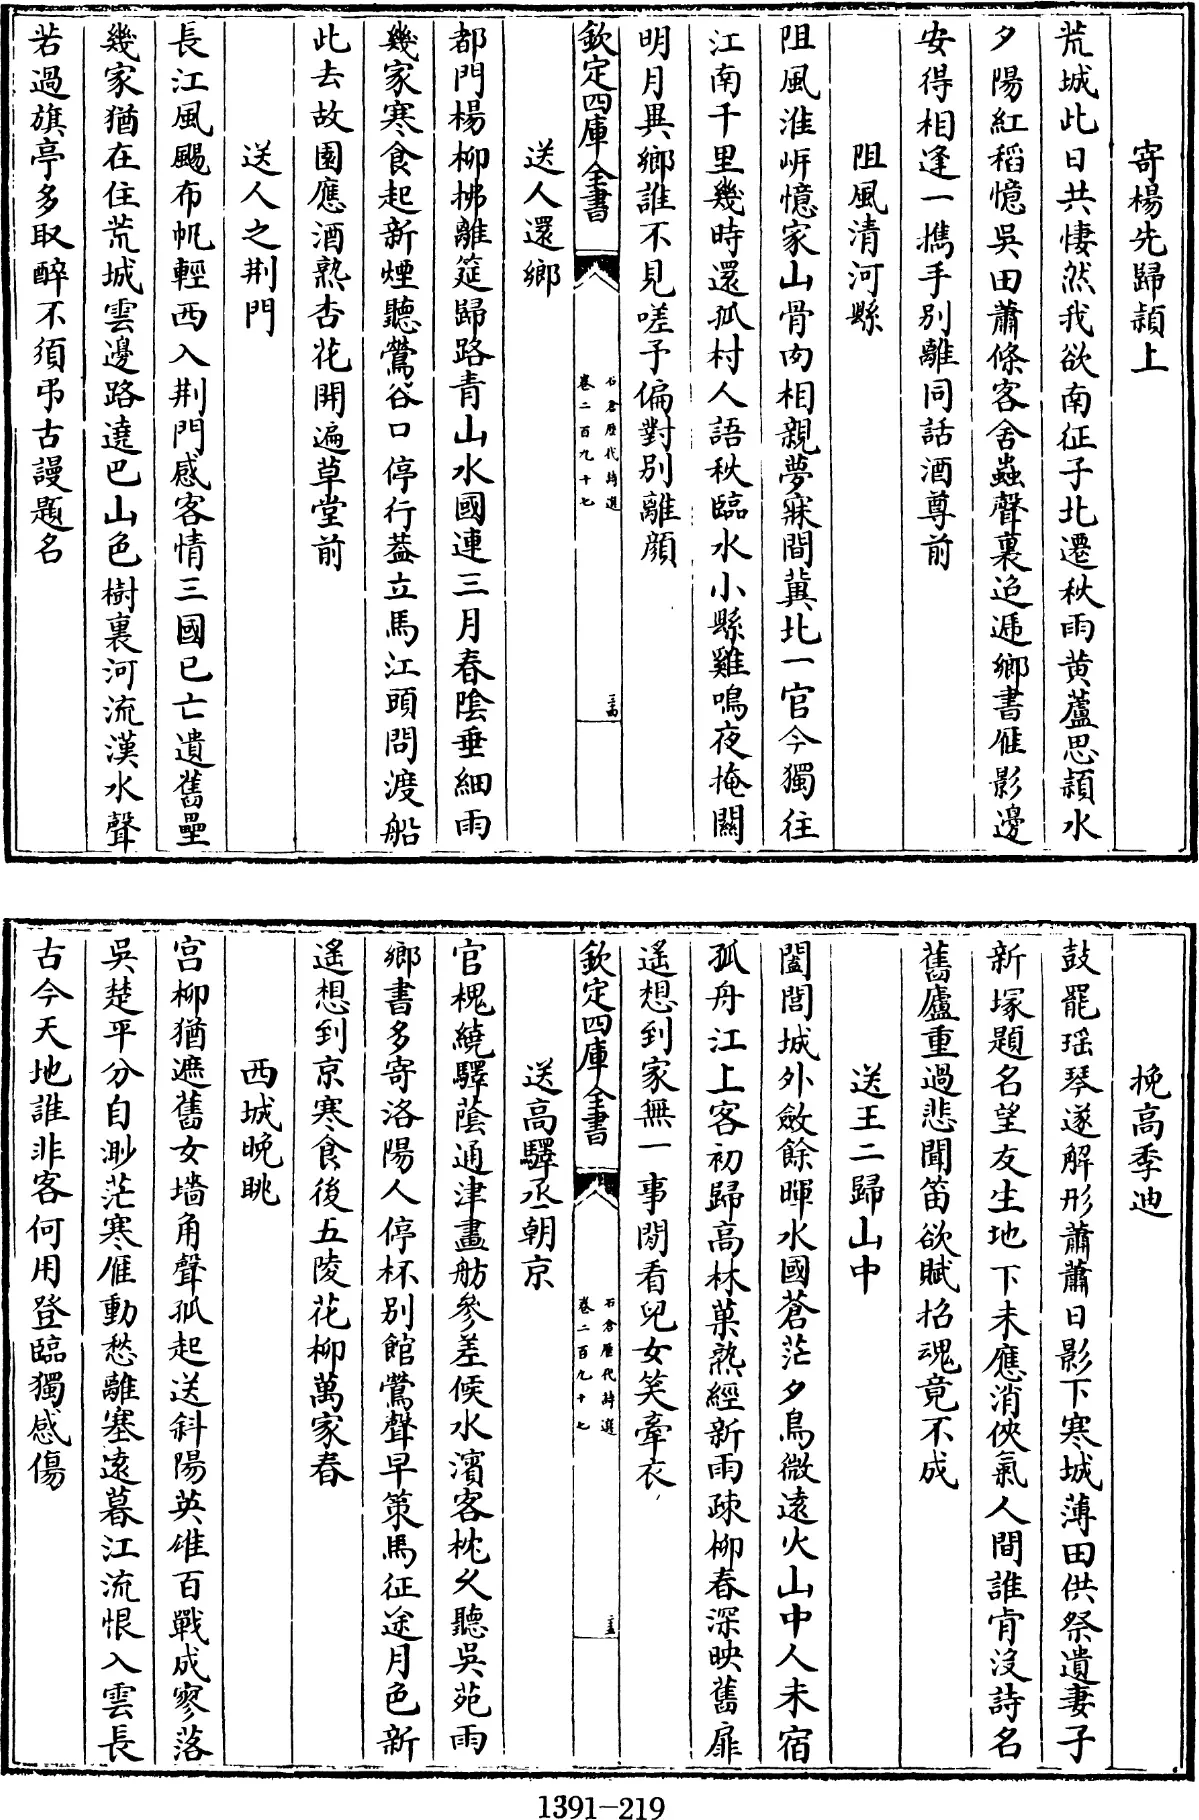 寄楊先歸潁上
荒城此日共悽然我欲南征子北遷秋雨黄蘆思潁水
夕陽紅稻憶吳田蕭條客舍蟲聲裏迢遞鄉書雁影邊
安得相逢一擕手別離同話酒尊前
阻風清河縣
阻風淮岍憶家山骨肉相親夢寐間冀北一官今獨往
江南千里幾時還孤村人語秋臨水小縣雞鳴夜掩關
明月異鄉誰不見嗟予偏對別離顔
欽定四庫全書
石倉歷代詩選
卷二百九十七
送人還鄉
都門楊柳拂離筵歸路青山水國連三月春陰垂細雨
幾家寒食起新煙聽鶯谷口停行葢立馬江頭問渡船
此去故園應酒熟杏花開遍草堂前
送人之荆門
長江風颺布帆輕西入荆門感客情三國已亡遺舊壘
幾家猶在住荒城雲邊路遶巴山色樹裏河流漢水聲
若過旗亭多取醉不須弔古謾題名
挽高季迪
鼓罷瑶琴遂解形蕭蕭日影下寒城薄田供祭遺妻子
新塚題名望友生地下未應消俠氣人間誰肯没詩名
舊廬重過悲聞笛欲賦招魂竟不成
送王二歸山中
闔閭城外斂餘暉水國蒼茫夕鳥微遠火山中人未宿
孤舟江上客初歸高林菓熟經新雨疎柳春深映舊扉
遥想到家無一事閒看兒女笑牽衣
欽定四庫全書
石倉歷代詩選
卷二百九十七
送高驛丞朝京
官槐繞驛蔭通津畫舫參差候水濱客枕久聽吳苑雨
鄉書多寄洛陽人停杯別館鶯聲早策馬征途月色新
遥想到京寒食後五陵花柳萬家春
西城晚眺
宫柳猶遮舊女墻角聲孤起送斜陽英雄百戰成寥落
吳楚平分自渺茫寒雁動愁離塞遠暮江流恨入雲長
古今天地誰非客何用登臨獨感傷
1391-219